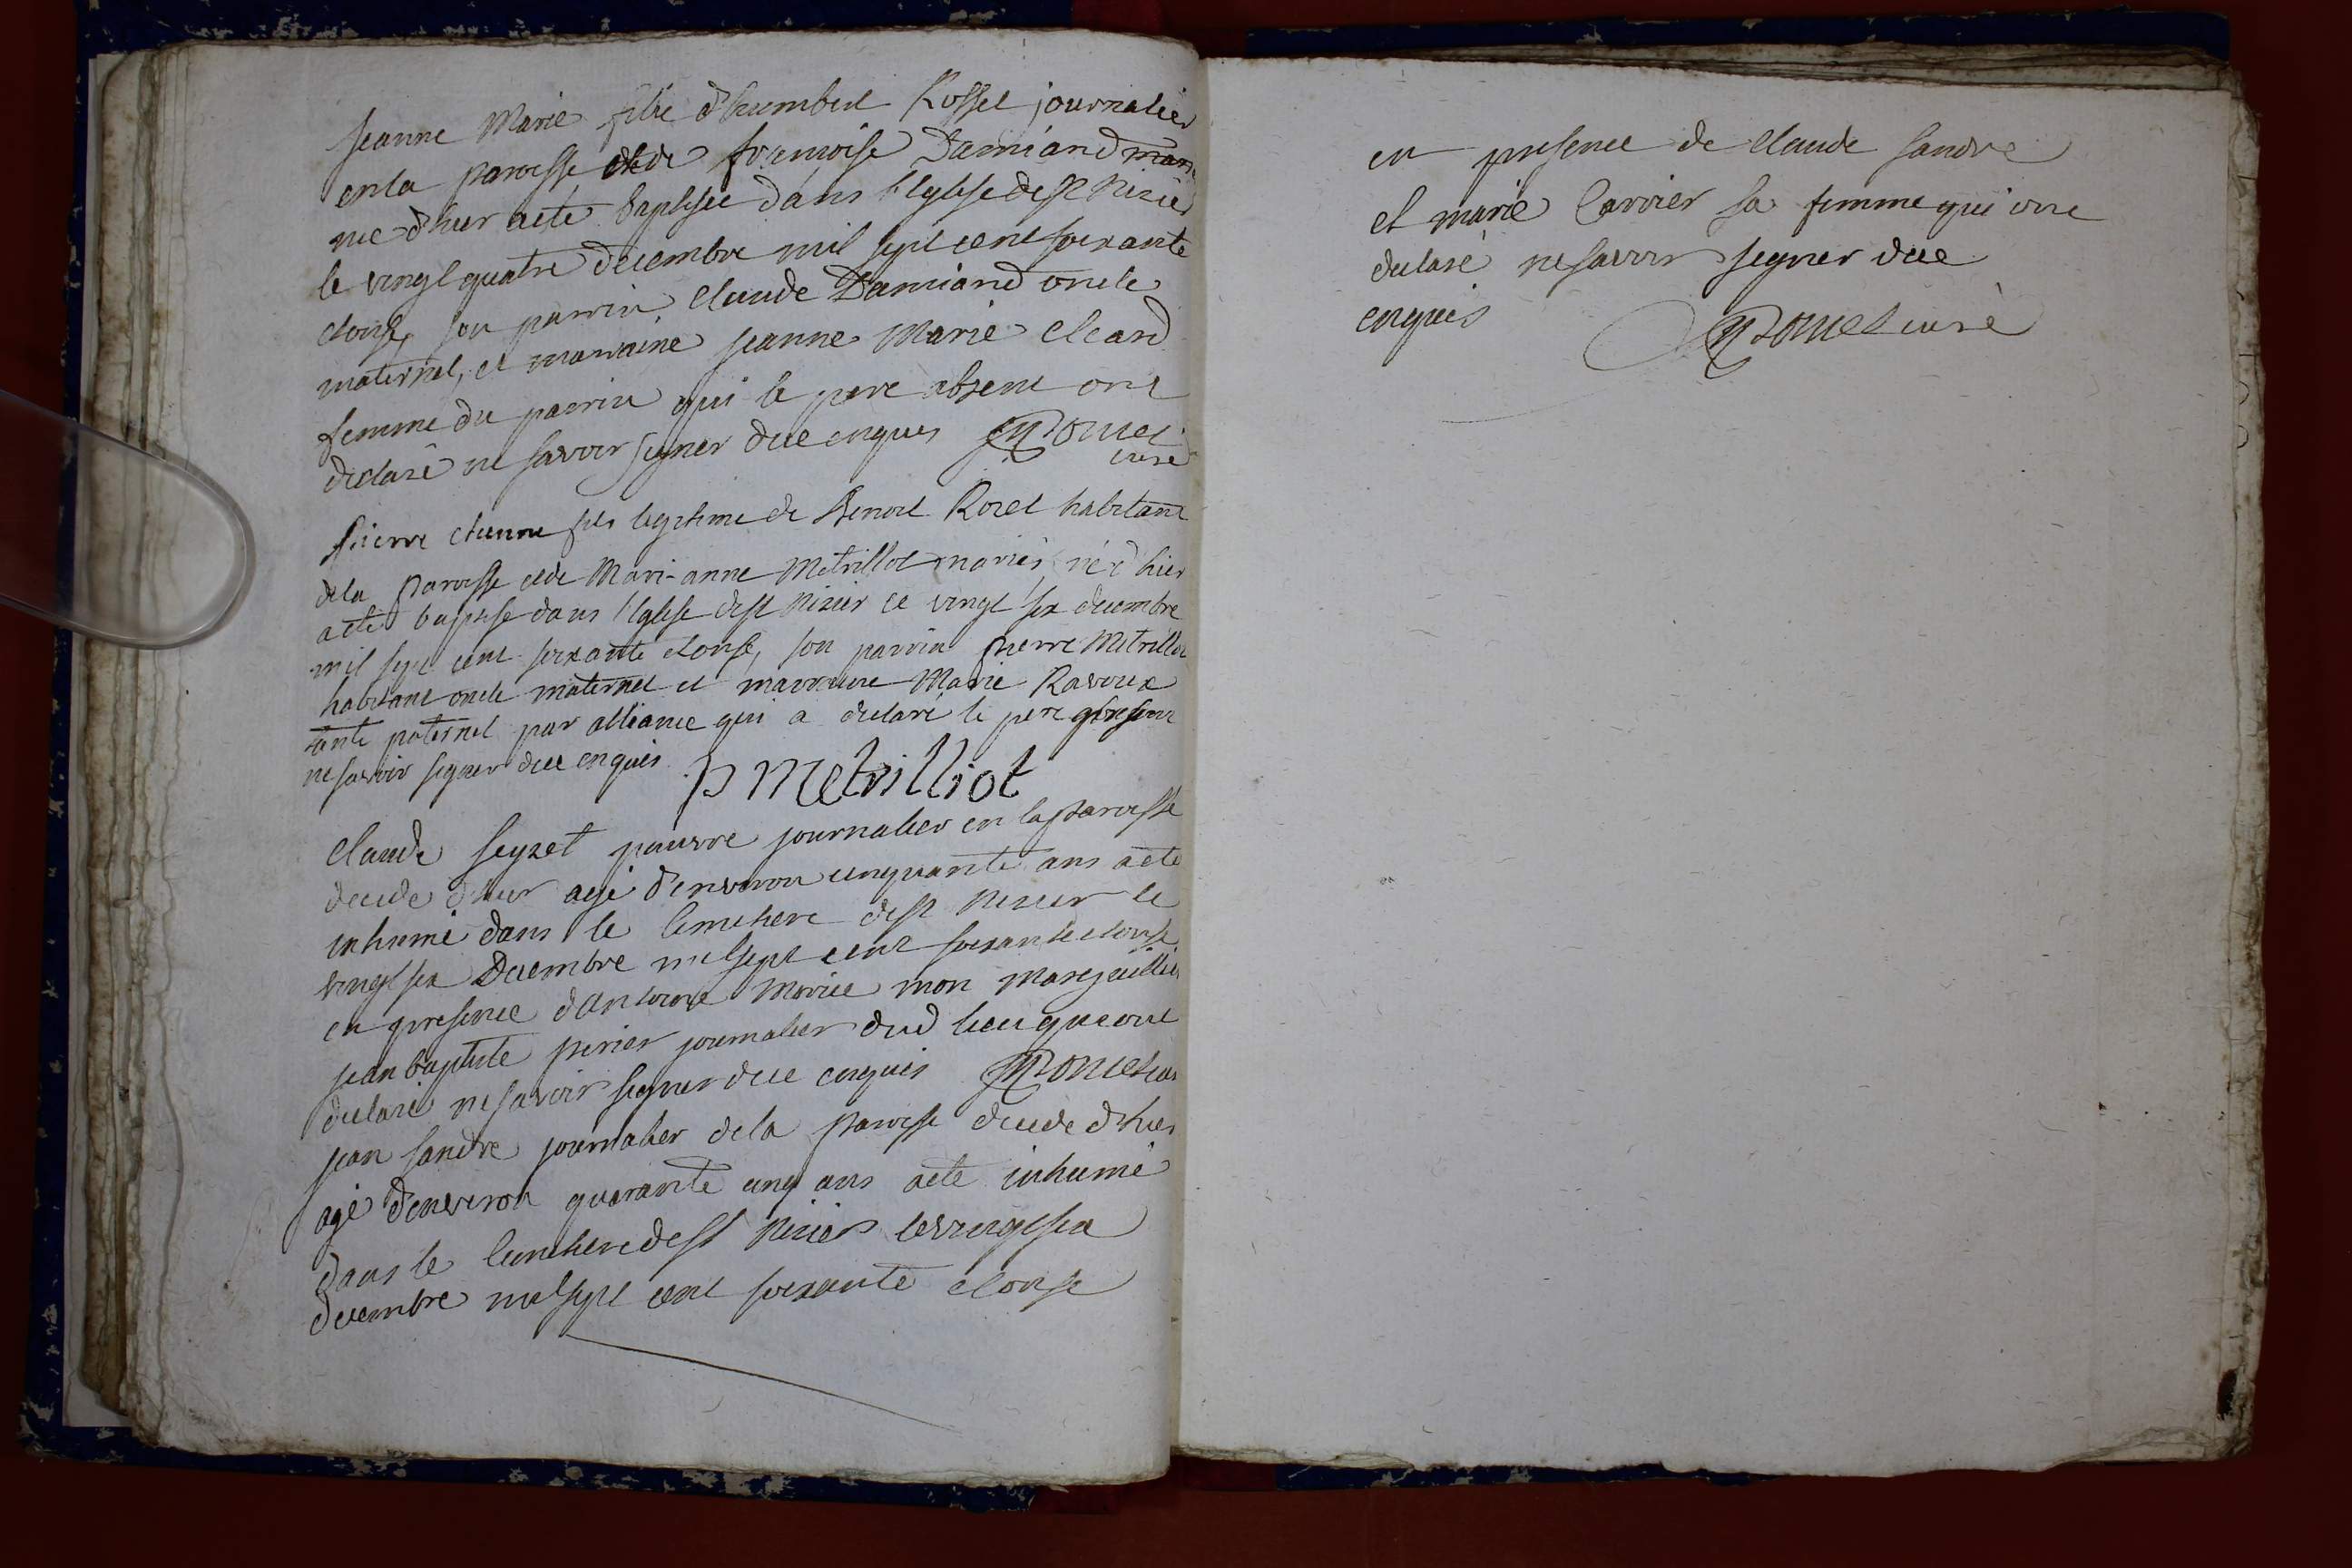 Jeanne Marie fille d'humbert Rossel journalier
en la paroisse et de françoise Damiand mari
née d'hier a eté baptisée dans l'Eglise de st Nizier
le vingt quatre decembre mil sept cent soixante
et onse, son parrin Claude Damiand oncle
maternel, et marraine jeanne Marie Cleard
femme du parrin qui le pere absent ont
declaré ne savoir signer de ce enquis Poncet
curé
pierre etienne fils legitime de Benoit Rozet habitant
de la paroisse et de Mari-anne Metrillot mariés, né d'hier
a eté baptisé dans l'Eglise de st Nizier ce vingt six decembre
mil sept cent soixante et onse, son parrin pierre Metrillot
habitant oncle maternel et marraine Marie Ravoux
tante paternel par alliance qui a declaré le pere present
ne savoir signer de ce enquis. p Metrilliot
Claude seyzet pauvre journalier en la paroisse
decedé d'hier agé d'environ cinquante ans a eté
inhumé dans le Cimetiere de st Nizier le
vingt six Decembre mil sept cent soixante et onse
en presence d'antoine Morice mon Marguillier
jean baptiste perier journalier dud lieu qui ont
declaré ne savoir signer de ce enquis Poncet cur
jean sandre journalier de la paroisse decedé d'hier
agé d'environ quarante cinq ans a eté inhumé
dans le Cimetiere de st Nizier le vingt six
decembre mil sept cent soixante et onse
en presence de Claude sandre
et marie Carrier sa femme qui ont
declaré ne savoir signer de ce
enquis Poncet curé